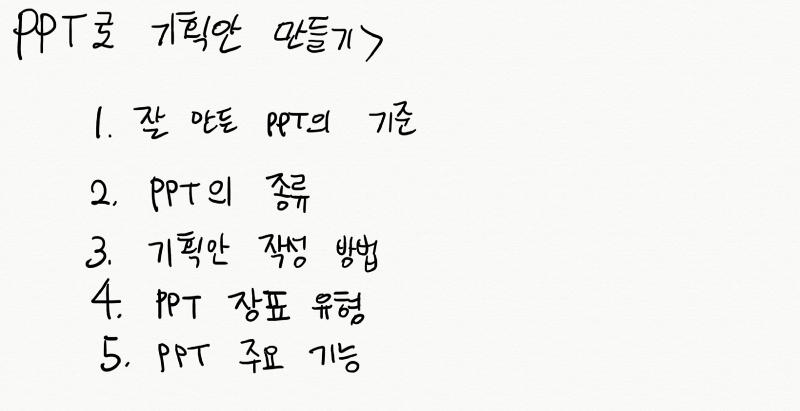 PPT로 기획안 만들기>
1. 잘 만든 PPT의 기준
2. PPT의 종류
3. 기획안 작성 방법
4. PPT 장표 유형
5. PPT 주요 기능